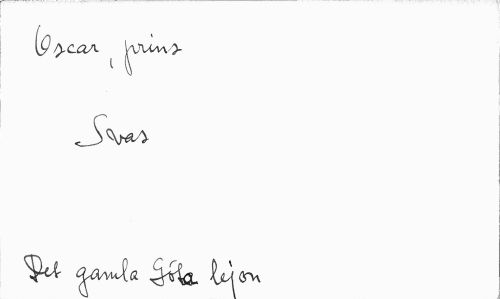 Oscar, prins
Svas
Det gamla Göta lejon